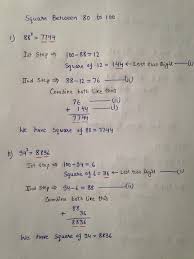 Square Between 80 to 100
1) 88² = 7744
Ist Step → 100-88 = 12
Square of 12 = 144 ← Last two Digit —(i)
IInd Step → 88-12 = 76 —(ii)
Combine both like this
76 —(ii)
+ 144 —(i)
7744
We have Square of 88 = 7744
2) 94² = 8836
Ist Step → 100-94 = 6
Square of 6 = 36 ← Last two Digit —(i)
IInd Step → 94-6 = 88 —(ii)
Combine both like this
88
36
8836
We have Square of 94 = 8836